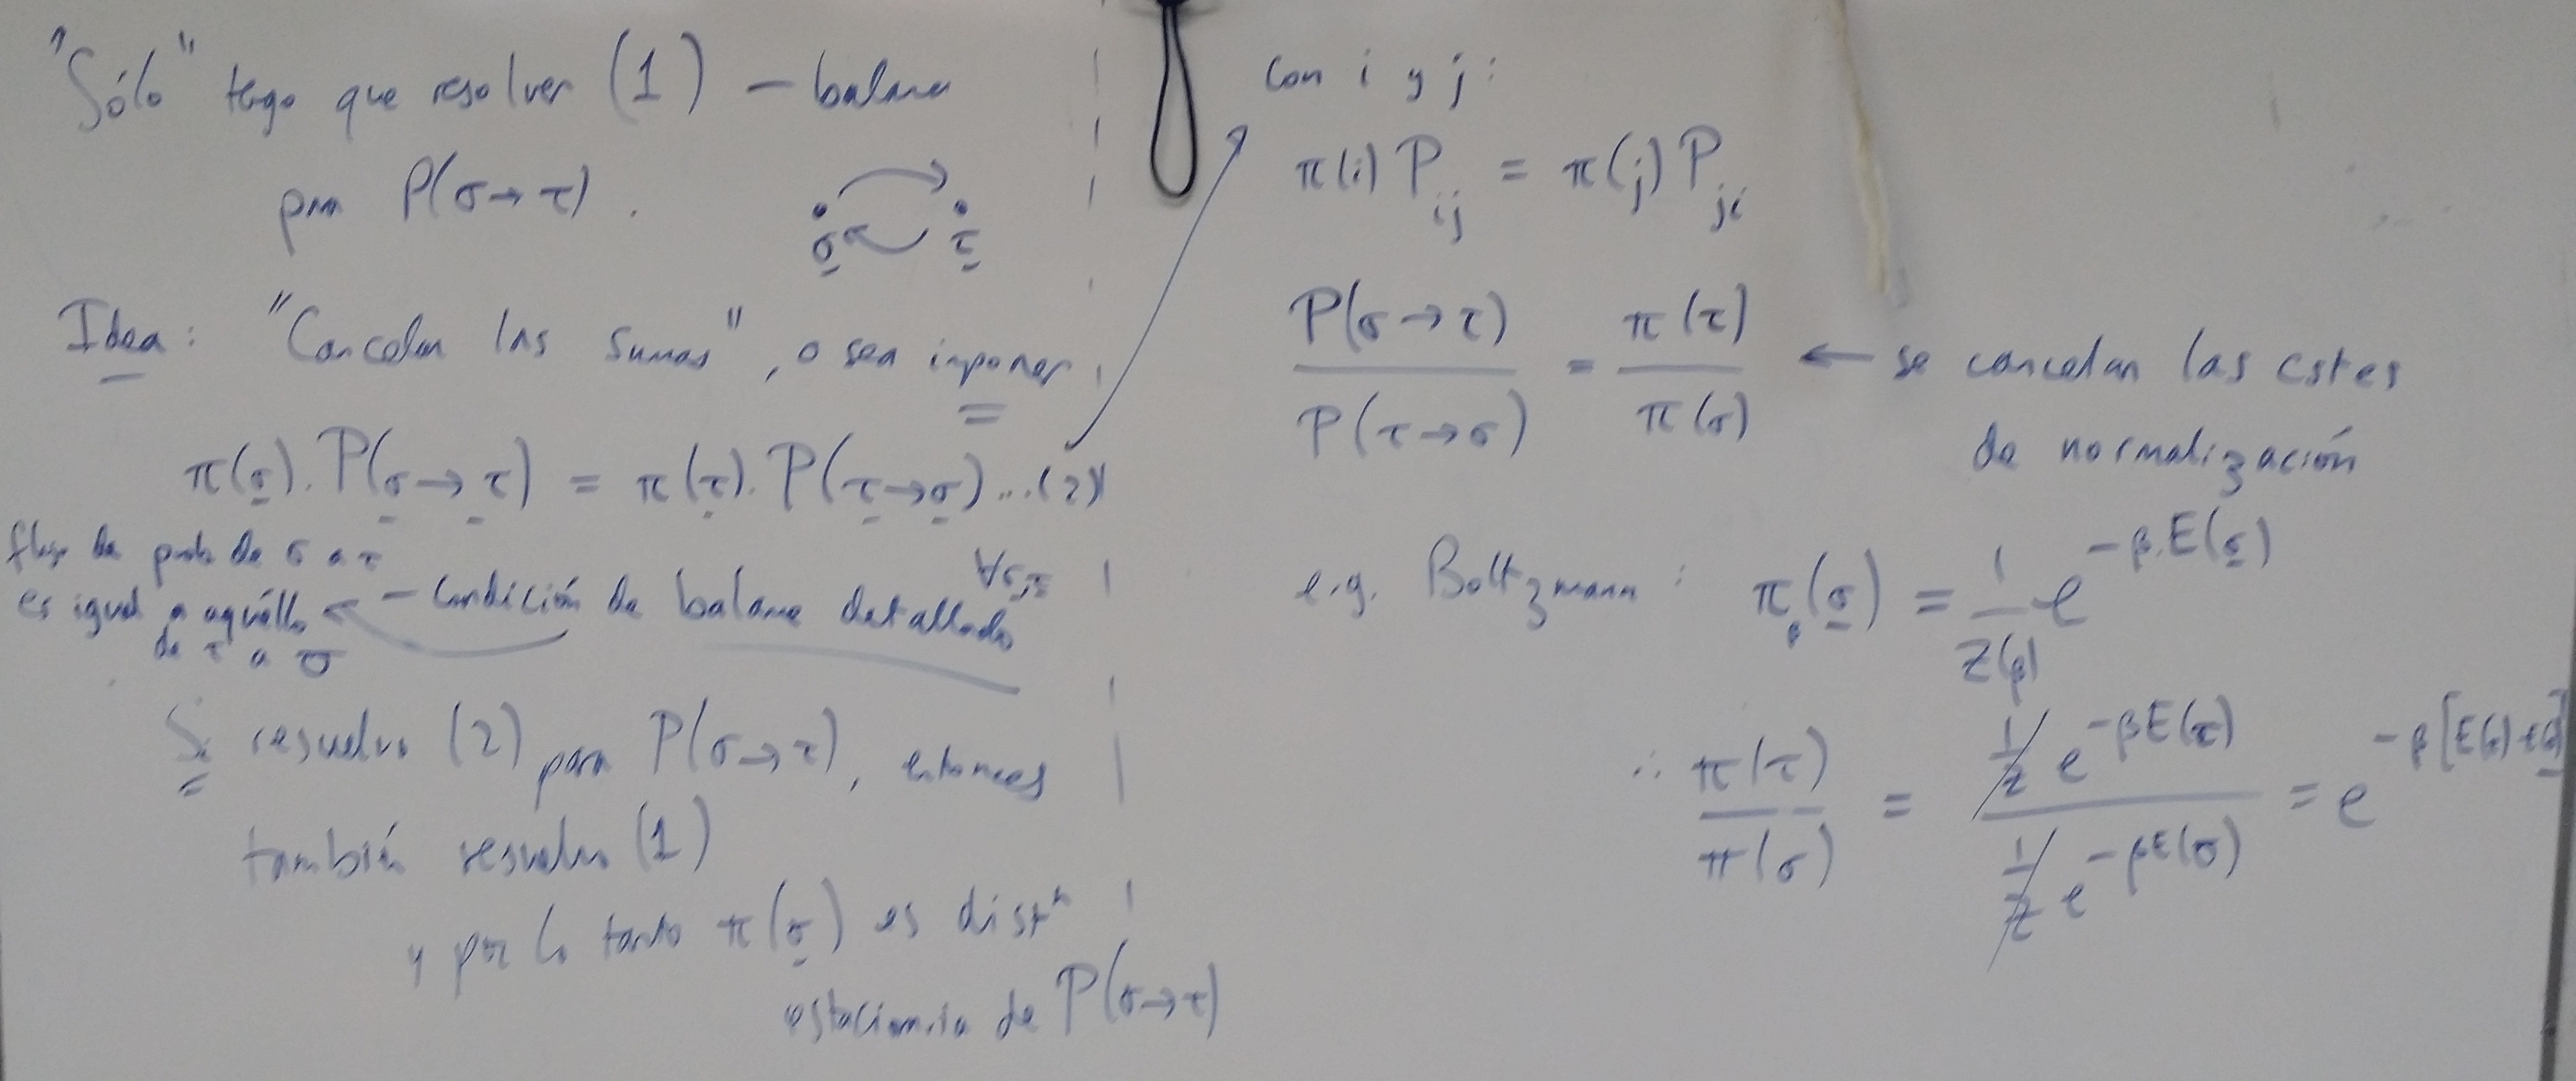 "Sólo" tengo que resolver (1) – balance
para P(σ→τ).
σ τ
Idea: "Cancelar las sumas", o sea imponer
π(σ).P(σ→τ) = π(τ).P(τ→σ)...(2)
∀σ,τ
flujo de prob de σ a τ
es igual a aquéllo
de τ a σ
– Condición de balance detallado
Si resuelvo (2) para P(σ→τ), entonces
también resuelvo (1)
y por lo tanto π(σ) es distⁿ
estacionaria de P(σ→τ)
Con i y j:
π(i) P_ij = π(j) P_ji
P(σ→τ) / P(τ→σ) = π(τ) / π(σ) ← se cancelan las cstes
de normalización
e.g. Boltzmann: π_β(σ) = 1/Z(β) e^{-β.E(σ)}
∴ π(τ) / π(σ) = (1/Z e^{-βE(τ)}) / (1/Z e^{-βE(σ)}) = e